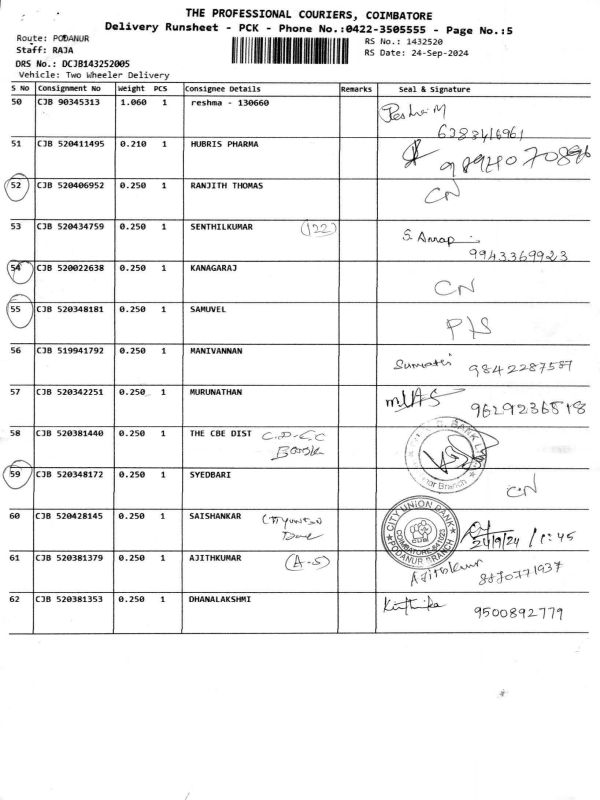 THE PROFESSIONAL COURIERS, COIMBATORE
Delivery Runsheet - PCK - Phone No.:0422-3505555 - Page No.:5
Route: PODANUR
RS No.: 1432520
Staff: RAJA
RS Date: 24-Sep-2024
DRS No.: DCJB143252005
Vehicle: Two Wheeler Delivery
S No Consignment No Weight PCS Consignee Details Remarks Seal & Signature
50 CJB 90345313 1.060 1 reshma - 130660 Reshma M
6383416961
51 CJB 520411495 0.210 1 HUBRIS PHARMA
52 CJB 520406952 0.250 1 RANJITH THOMAS CN
53 CJB 520434759 0.250 1 SENTHILKUMAR (122)
9943369923
54 CJB 520022638 0.250 1 KANAGARAJ CN
55 CJB 520348181 0.250 1 SAMUVEL P/S
56 CJB 519941792 0.250 1 MANIVANNAN Sumathi 9842287587
57 CJB 520342251 0.250 1 MURUNATHAN 9629236518
58 CJB 520381440 0.250 1 THE CBE DIST C.D.C.C
Bank
59 CJB 520348172 0.250 1 SYEDBARI CN
60 CJB 520428145 0.250 1 SAISHANKAR
CITY UNION BANK
COIMBATORE-641023
CUB
PODANUR BRANCH
24/9/24 11:45
61 CJB 520381379 0.250 1 AJITHKUMAR (A-5) Ajithkumar
8870771937
62 CJB 520381353 0.250 1 DHANALAKSHMI Kirthika 9500892779